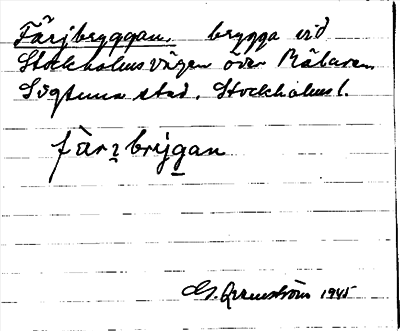 Färjbryggan, brygga vid
Stockholmsvägen över Mälaren
Sigtuna stad. Stockholms l.
färɿbrygan
1945